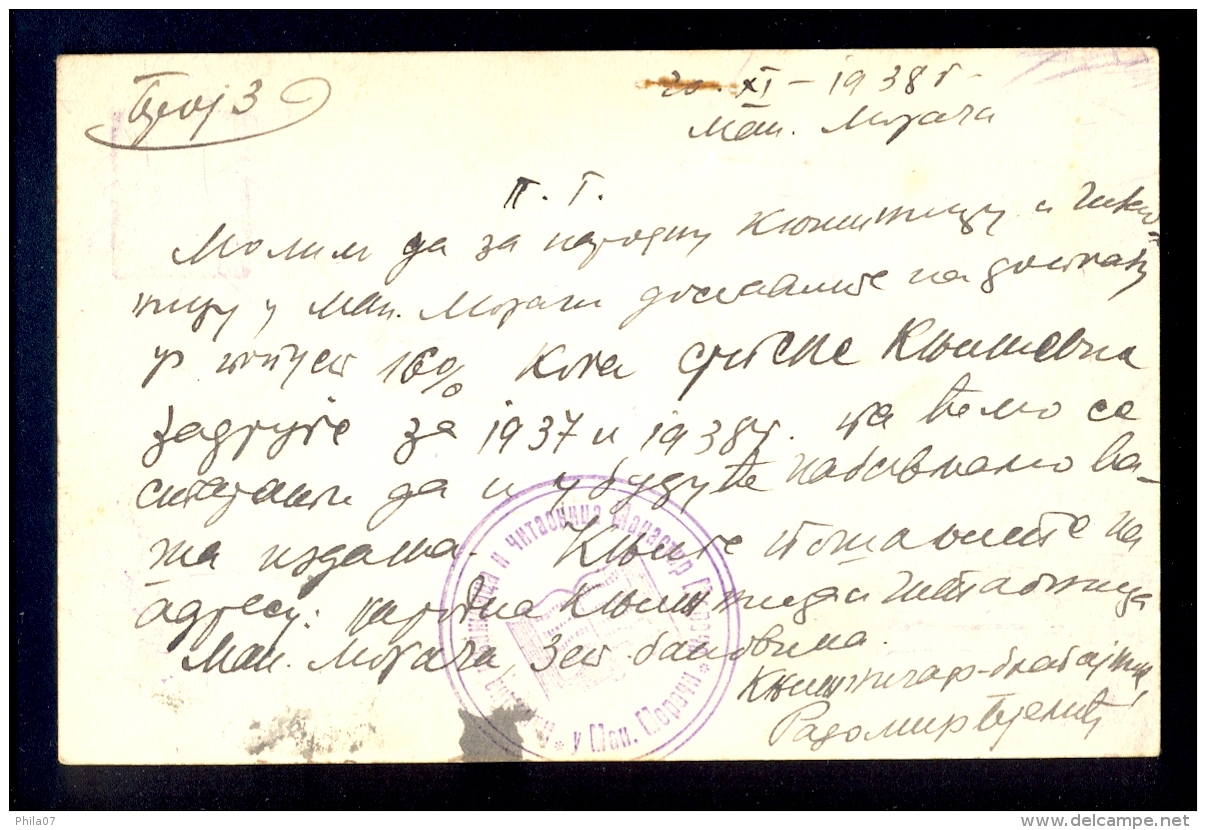 Број 3
20. XI – 1938 г.
Ман. Морача
П. Г.
Молим да за народну књижницу и читао-
ницу у Ман. Морачи доставите на
16% кола српске књижевне
задруге за 1937 и 1938 г. па ћемо се
старати да и у будуће набављамо ва-
ша издања. Књиге пошаљите на
адресу: народна књижница и читаоница
Ман. Морача, Зет. бановина.
књижничар-благајник,
Радомир
књижница и читаоница Манастир Морачи
у Ман. Морачи
Phila07
©delcampe.net